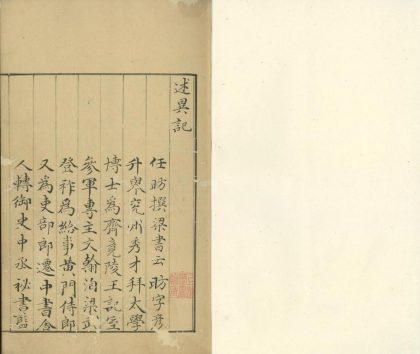 述異記
任昉撰梁書云昉字彥
升舉兖州秀才拜太學
博士為齊竟陵王記室
參軍專主文翰洎梁武
登祚為給事黃門侍郎
又為吏部郎遷中書舍
人轉御史中丞祕書監